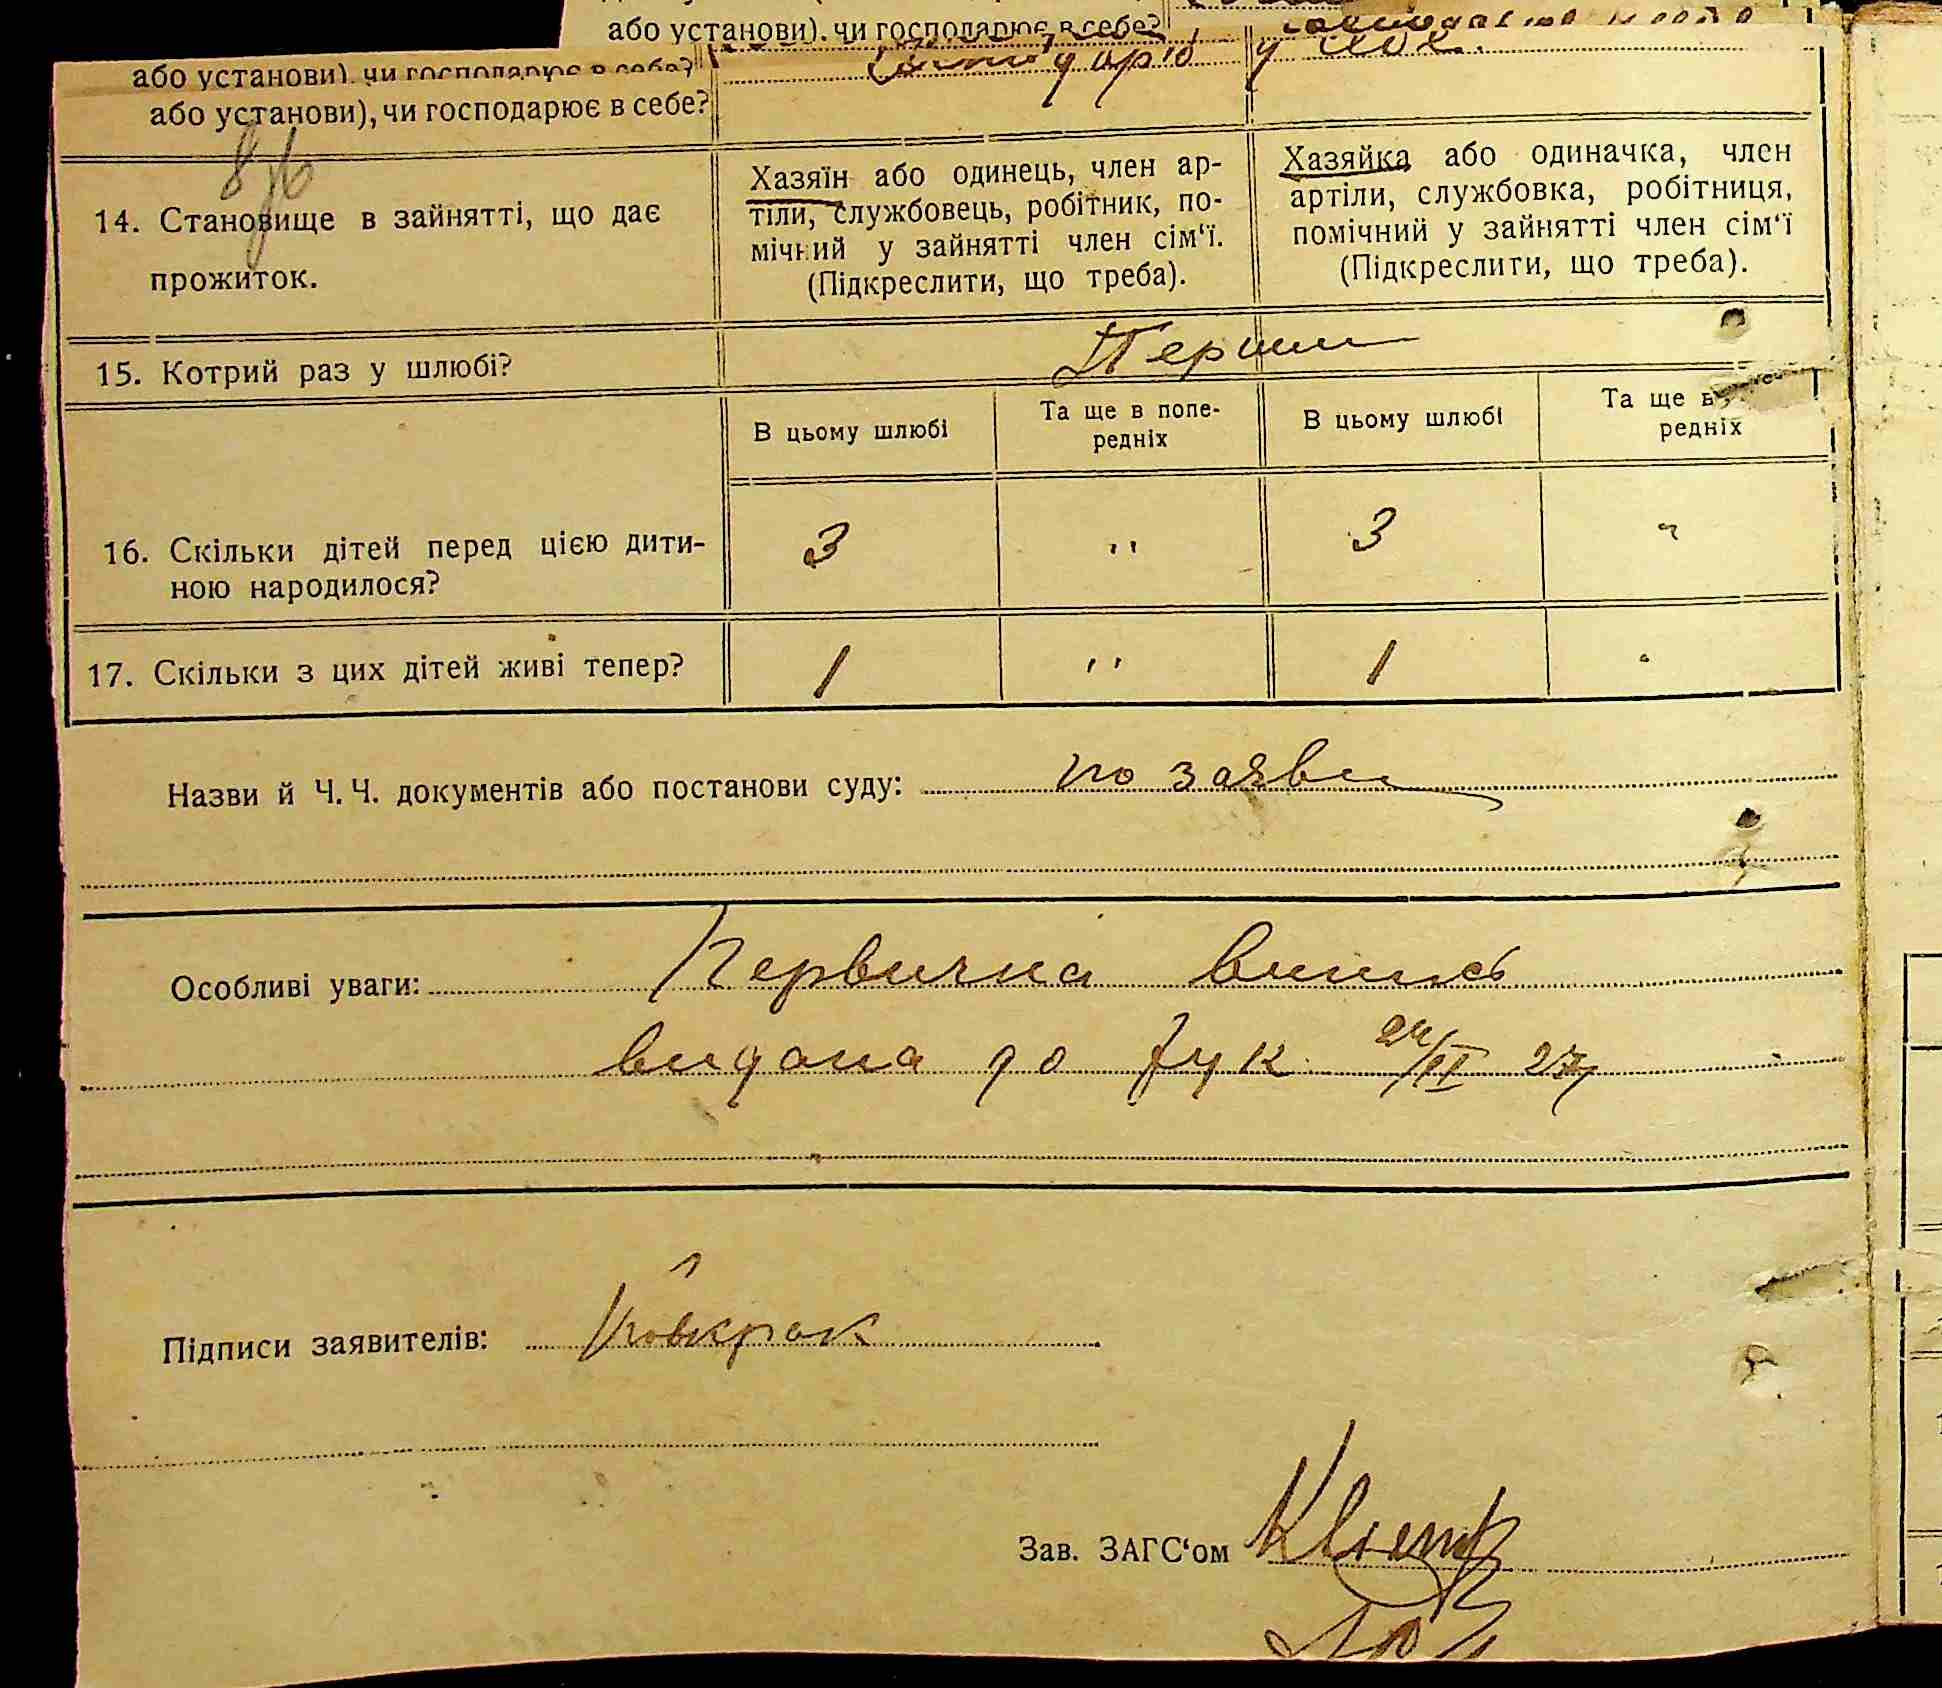 або установи), чи господарює в себе?
або установи), чи господарює в себе?
або установи), чи господарює в себе?
14. Становище в зайнятті, що дає
прожиток.
Хазяїн або одинець, член ар-
тіли, службовець, робітник, по-
мічний у зайнятті член сім‘ї.
(Підкреслити, що треба).
Хазяйка або одиначка, член
артіли, службовка, робітниця,
помічний у зайнятті член сім‘ї
(Підкреслити, що треба).
15. Котрий раз у шлюбі?
Перший
В цьому шлюбі
Та ще в попе-
редніх
В цьому шлюбі
Та ще в
редніх
16. Скільки дітей перед цією дити-
ною народилося?
3 " 3 "
17. Скільки з цих дітей живі тепер?
1 " 1 "
Назви й Ч. Ч. документів або постанови суду: по заяви
Особливі уваги: Первична випись
видана до рук 24/II 27
Підписи заявителів:
Зав. ЗАГС‘ом